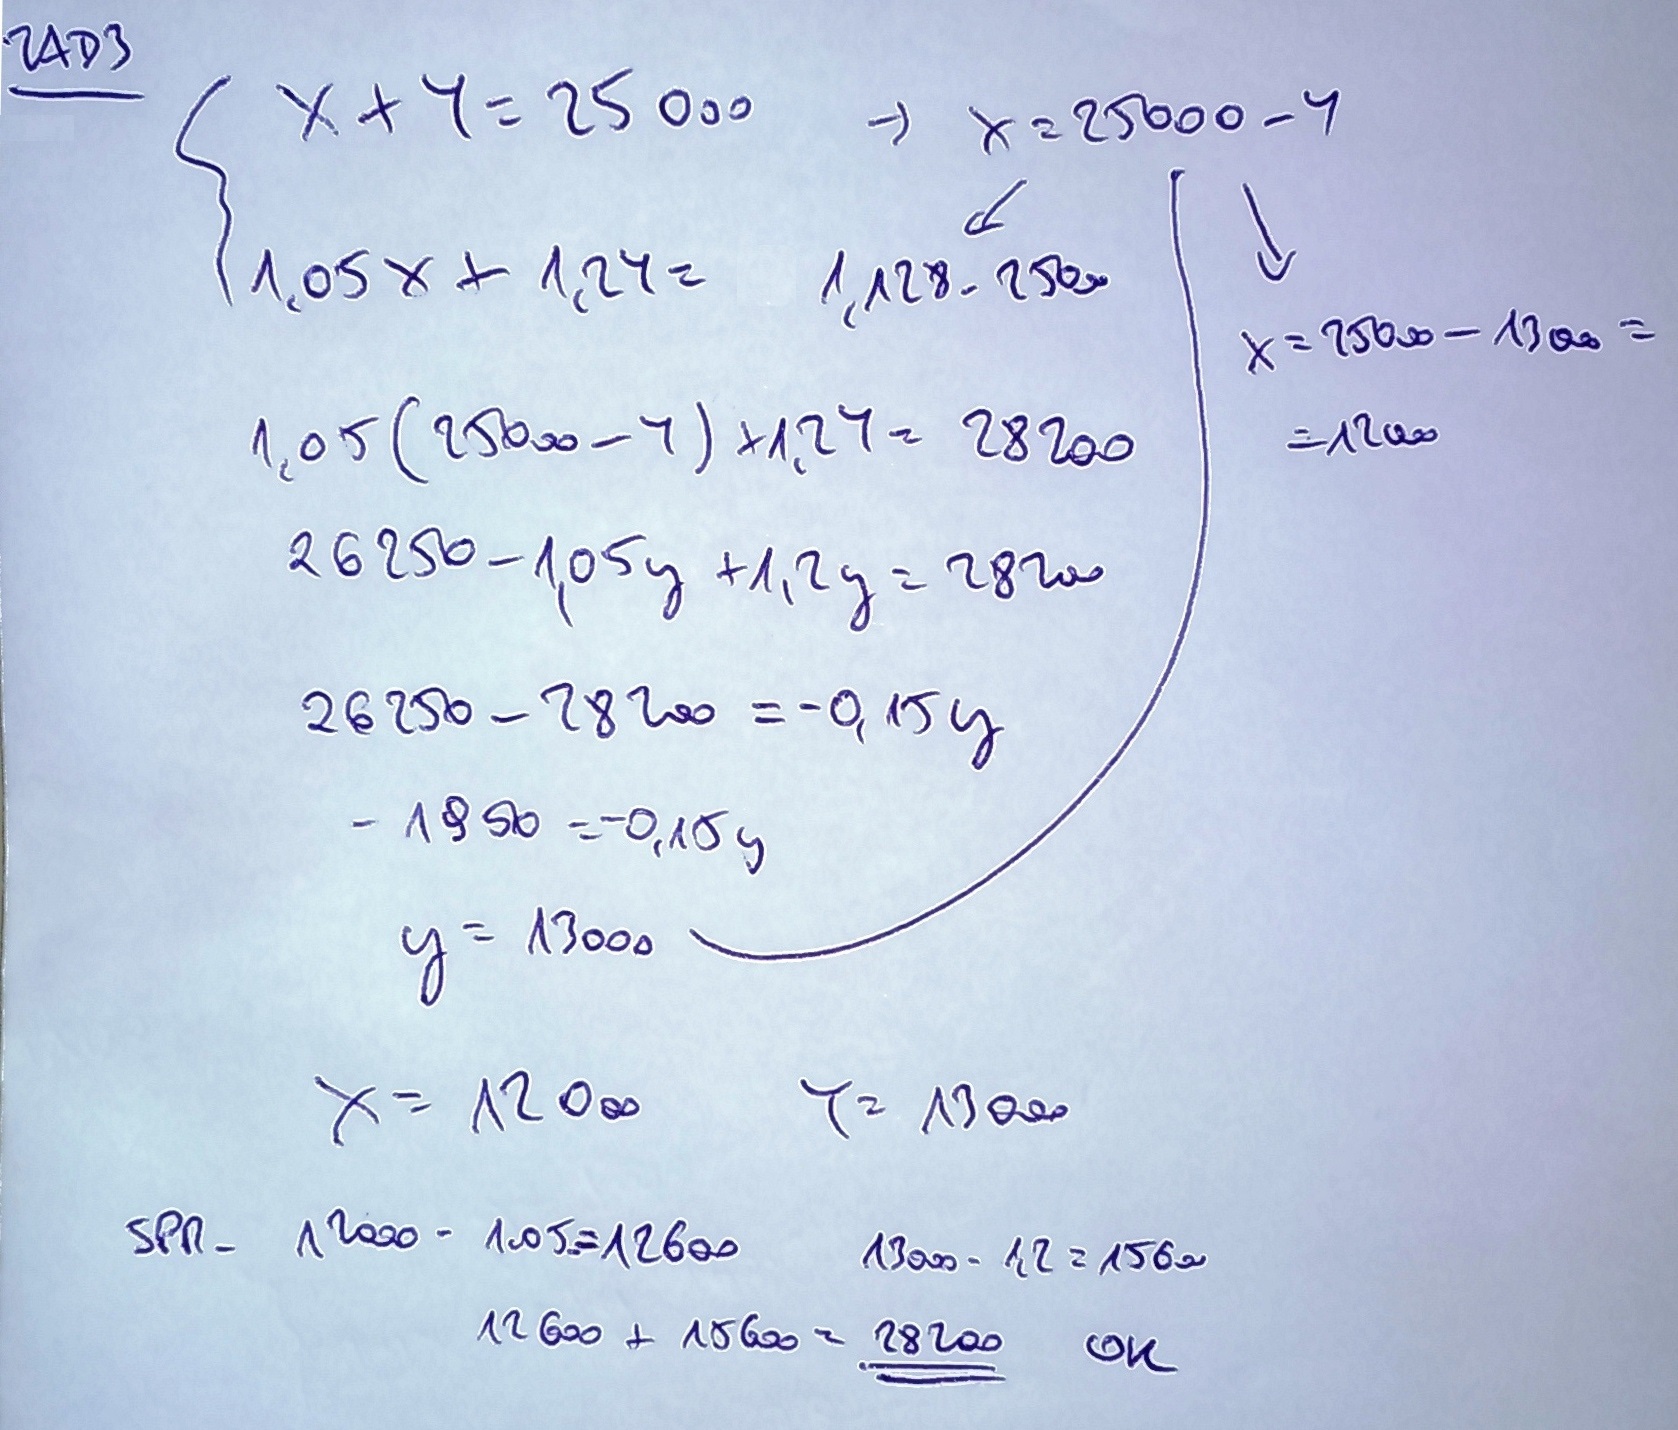 ZAD3
x + y = 25 000 → x = 25000 - y
1,05x + 1,2y = 1,128 · 25000
x = 25000 - 13000 =
= 12000
1,05(25000 - y) + 1,2y = 28200
26250 - 1,05y + 1,2y = 28200
26250 - 28200 = -0,15y
- 1950 = -0,15y
y = 13000
x = 12000 y = 13000
SPR- 12000 · 1.05 = 12600 13000 · 1,2 = 15600
12600 + 15600 = 28200 OK